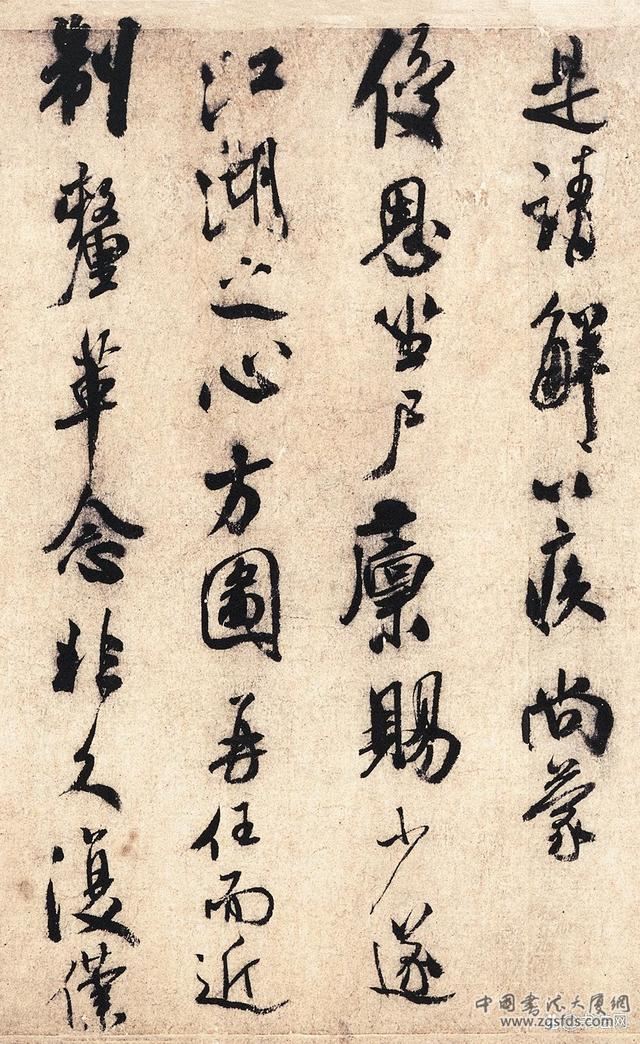 是請解以疾尚蒙
優恩坐尸廩賜少遂
江湖之心方圖再任而近
制釐革念非久復僕
中國書法大廈網
www.zgsfds.com